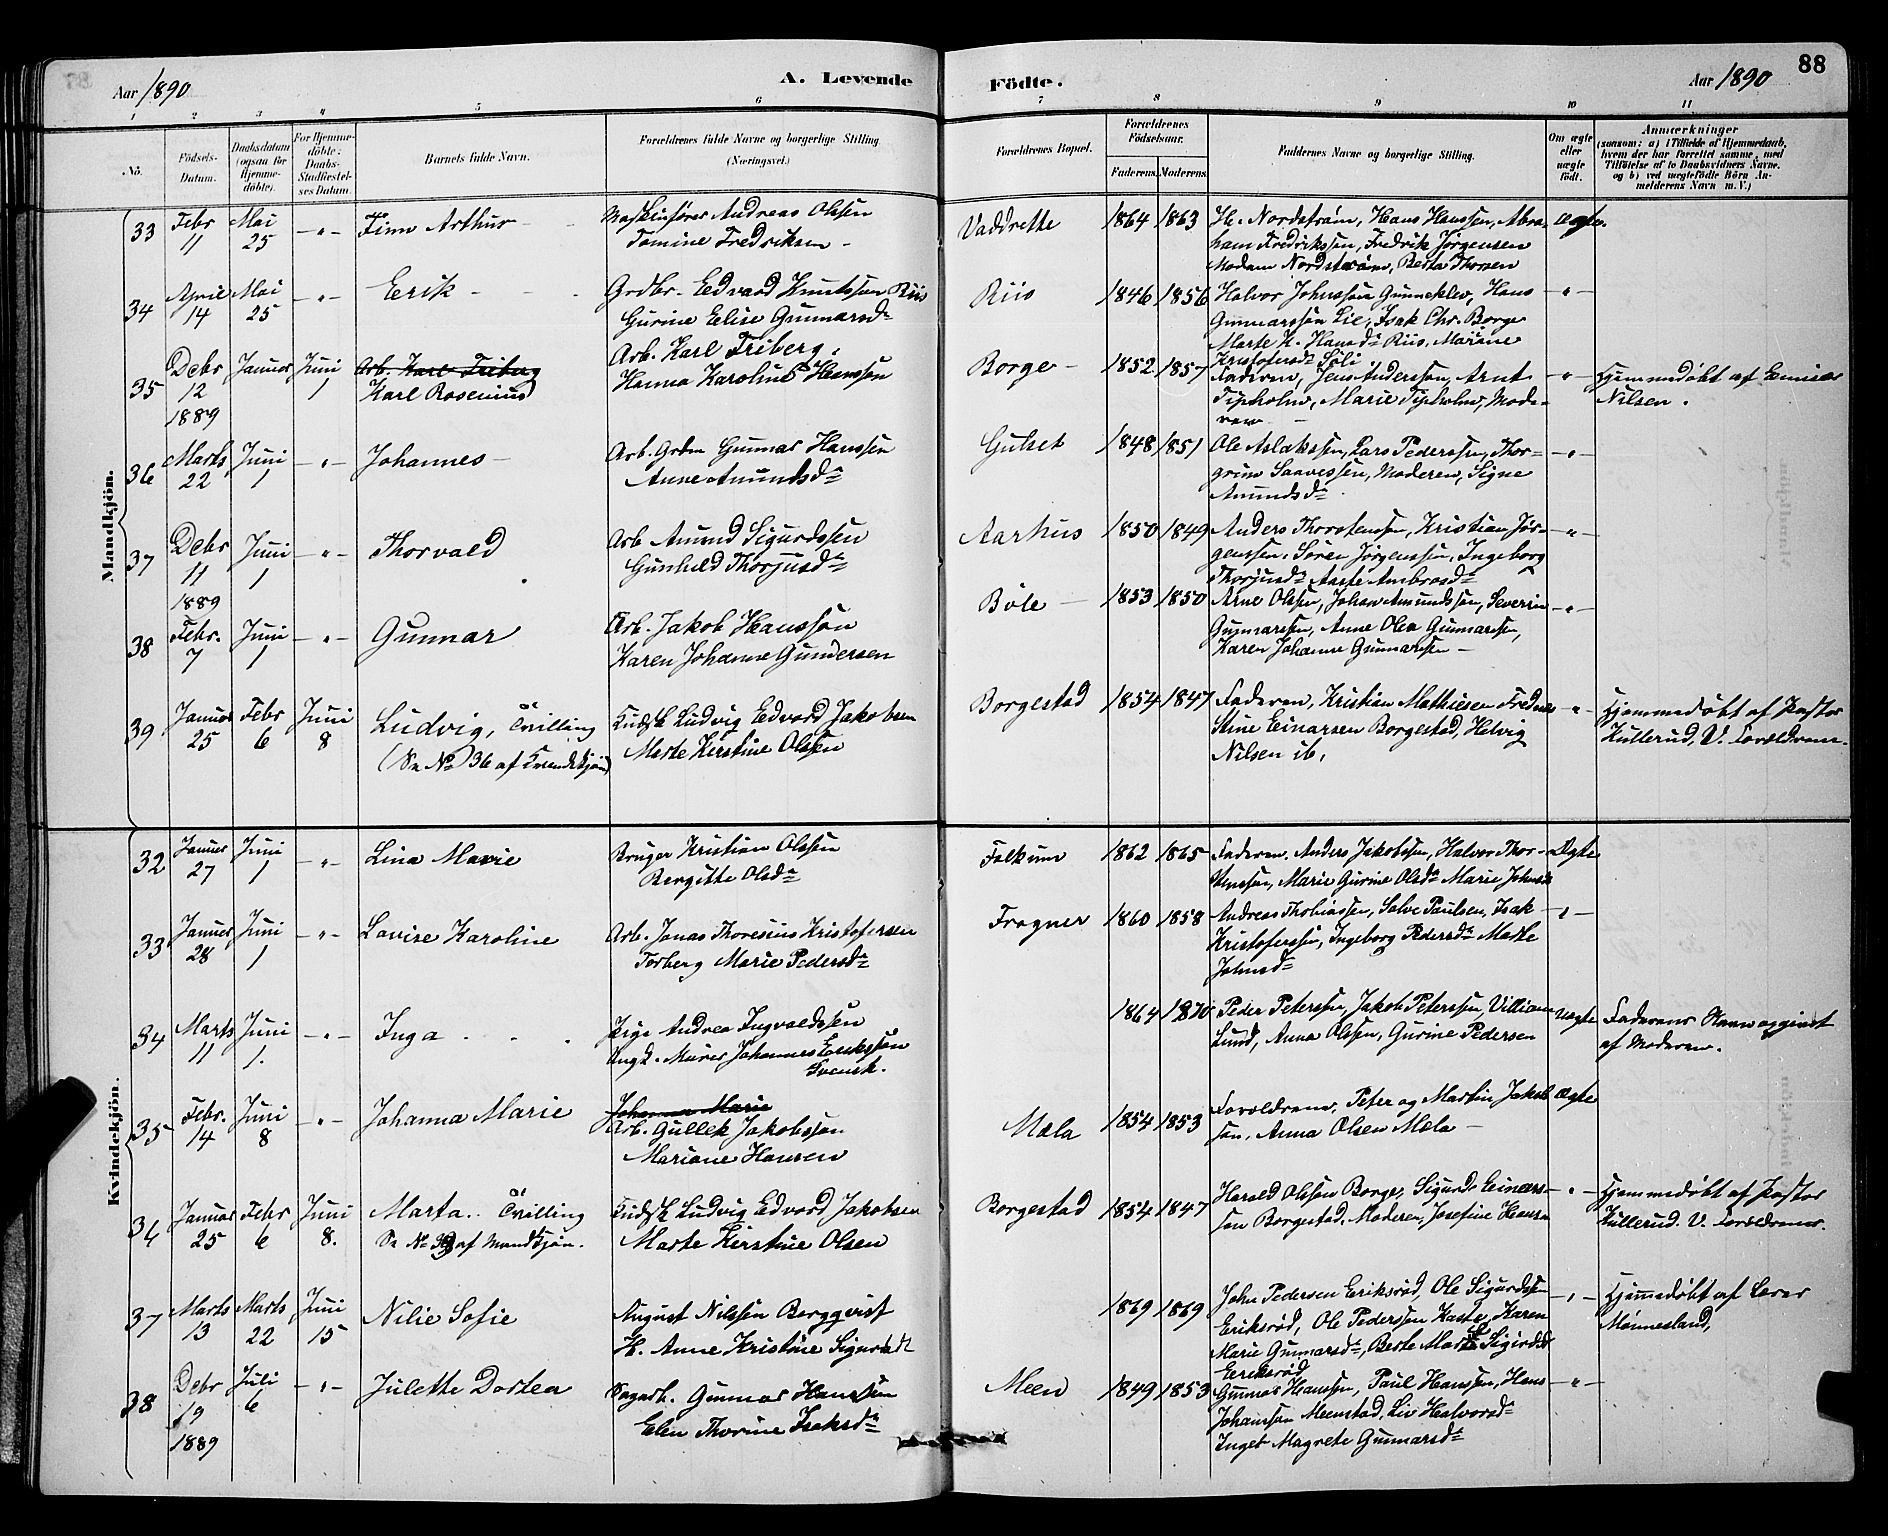 88
Aar 1890
A. Levende
Födte.
Aar 1890
1 2 3 4 5 6 7 8 9 10 11
No.
Födsels-Datum.
Daabsdatum (ogsaa for Hjemme-döbte).
For Hjemme-döbte: Daabs-Stadfæstel-ses Datum.
Barnets fulde Navn.
Forældrenes fulde Navne og borgerlige Stilling. (Næringsvei.)
Forældrenes Bopæl.
Forældrenes Födselsaar.
Faderens. Moderens.
Faddernes Navne og borgerlige Stilling.
Om ægte eller uægte födt.
Anmærkninger
(saasom: a) i Tilfælde af Hjemmedaab, hvem der har forrettet samme, med Tilföielse af to Daabsvidners Navne, og b) ved uægtefödte Börn Anmelderens Navn m. V.)
Mandkjön.
33 Febr 11 Mai 25 -"- Finn Arthur
Maskinförer Andreas Olssen
Tomine Fredriksen
Vaddrette 1864 1863
H. Nordström, Hans Hanssen, Abra-
ham Fredrikssen, Fredrik Jörgensen
Madam Nordström, Berta Thorsen
Ægte.
34 April 14 Mai 25 -"- Erik
Grdbr. Edvard Knutssen Riis
Gurine Elise Gunnarsd
Riis 1846 1856
Halvor Johnssön Gunneklev, Hans
Gunnarssön Lie, Isak Chr. Borge
Marte H. Hansd Riis, Mariane
Kristofersd Söli
-"-
35 Debr 12 1889 Januar Juni 1
Arb. Karl Friberg
Karl Rosenius
Arb. Karl Friberg,
Hanna Karoline Hansen
Borge 1852 1857
Faderen, Jens Anderssen, Arnt
Tipholm, Marie Tipholm, Mode-
ren
-"-
Hjemmedöbt af
Nilsen.
36 Marts 22 Juni 1 -"- Johannes
Arb. Grdm Gunnar Hanssen
Anne Amundsd
Gulset 1848 1851
Ole Aslakssen, Lars Pederssen, Thor-
grim Saavessen, Moderen, Signe
Amundsd
-"-
37 Debr 11 1889 Juni 1 -"- Thorvald
Arb Amund Sigurdssen
Gunhild Thorjusd
Aarhus 1850 1849
Anders Thorstenssen, Kristian Jör-
genssen, Sören Jörgenssen, Ingeborg
Thorjusd Aaste Ambrosd
-"-
38 Febr. 7 Juni 1 -"- Gunnar
Arb. Jakob Hanssön
Karen Johanne Gundersen
Böle 1853 1850
Arne Olssen, Johan Amundssön, Severin
Gunnarssen, Anne Olea Gunnarssen,
Karen Johanne Gunnarssen
-"-
39 Januar 25 Febr 6 Juni 8
Ludvig, Tvilling
(Se No 36 af Kvindekjön)
Kudsk Ludvig Edvard Jakobsen
Marte Kirstine Olsen
Borgestad 1854 1847
Faderen, Kristian Mathiesen
Stine Einarsen Borgestad, Helvig
Nilsen ib.
-"-
Hjemmedöbt af Pastor
Kullerud, V. Forældrene.
Kvindekjön.
32 Januar 27 Juni 1 -"- Lina Marie
Bruger Kristian Olssen
Bergitte Olsd
Falkum 1862 1865
Faderen, Anders Jakobssen, Halvor Thor-
Marie Gurine Olsd Marie Johnsd
Ægte
33 Januar 28 Juni 1 -"- Lovise Karoline
Arb. Jonas Thoresius Kristofersen
Torberg Marie Pedersd
Frogner 1860 1858
Andreas Thobiassen, Salve Paulsen, Isak
Kristoferssen, Ingeborg Pedersd Marte
Johnsd
-"-
34 Marts 11 Juni 1. -"- Inga
Pige Andrea Ingvaldssen
Ungk. Murer Johannes Erikssön
Svensk.
1864 1870
Peder Peterssen, Jakob Peterssen, Villiam
Lund, Anna Olssen, Gurine Pedersen
Uægte
Faderens Navn opgivet
af Moderen.
35 Febr. 14 Juni 8 -"- Johanna Marie
Johanna Marie
Arb. Gullek Jakobssön
Mariane Hansen
Mæla 1854 1853
Forældrene, Peter og Martin Jakob-
sen, Anna Olsen Mæla
Ægte
36 Januar 25 Febr 6 Juni 8.
Marta.. Tvilling
Se No 39 af Mandkjön.
Kudsk Ludvig Edvard Jakobsen
Marte Kirstine Olsen
Borgestad 1854 1847
Harald Olssön Borge, Sigurd Einars-
sön Borgestad, Moderen, Josefine Hansen
-"-
Hjemmedöbt af Pastor
Kullerud. V. Forældrene.
37 Marts 13 Marts 22 Juni 15
Nilie Sofie
August Nilssen Bergqvist
H. Anne Kristine Sigurdsd
1869 1869
John Pedersen Eriksröd, Ole Sigurdssen
Eriksröd, Ole Pederssen Karen
Marie Gunnarsd, Berte Marte Sigurdsd
Eriksröd
-"-
Hjemmedöbt af Lærer
Mönnesland,
38 Debr 19 1889 Juli 6 -"- Julette Dortea
Sagarb. Gunnar Hanssen
Elen Thorine Isaksd
Meen 1849 1853
Gunnar Hanssen, Paul Hanssen, Hans
Johanssön Meenstad, Liv Halvorsd
Inger Magrete Gunnarsd
-"-